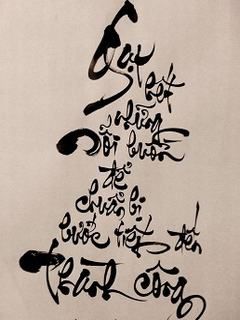 Gạt
hết
những
Nỗi buồn
để
chuẩn bị
bước tiếp đến
Thành công